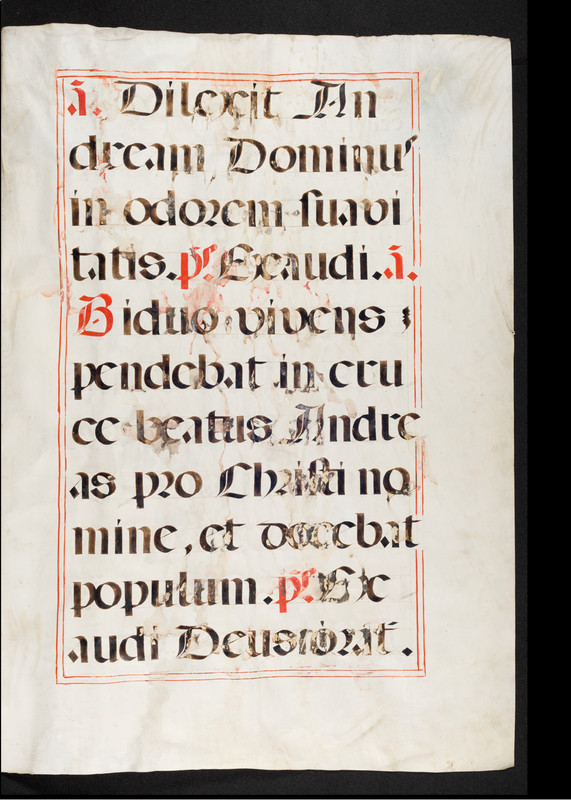 ā. Dilexit An
dream Dominus
in odorem suavi
tatis. ps. Exaudi. ā.
Biduo vivens
pendebat in cru
ce beatus Andre
as pro Christi no
mine, et docebat
populum. ps. Ex
audi Deus orat.